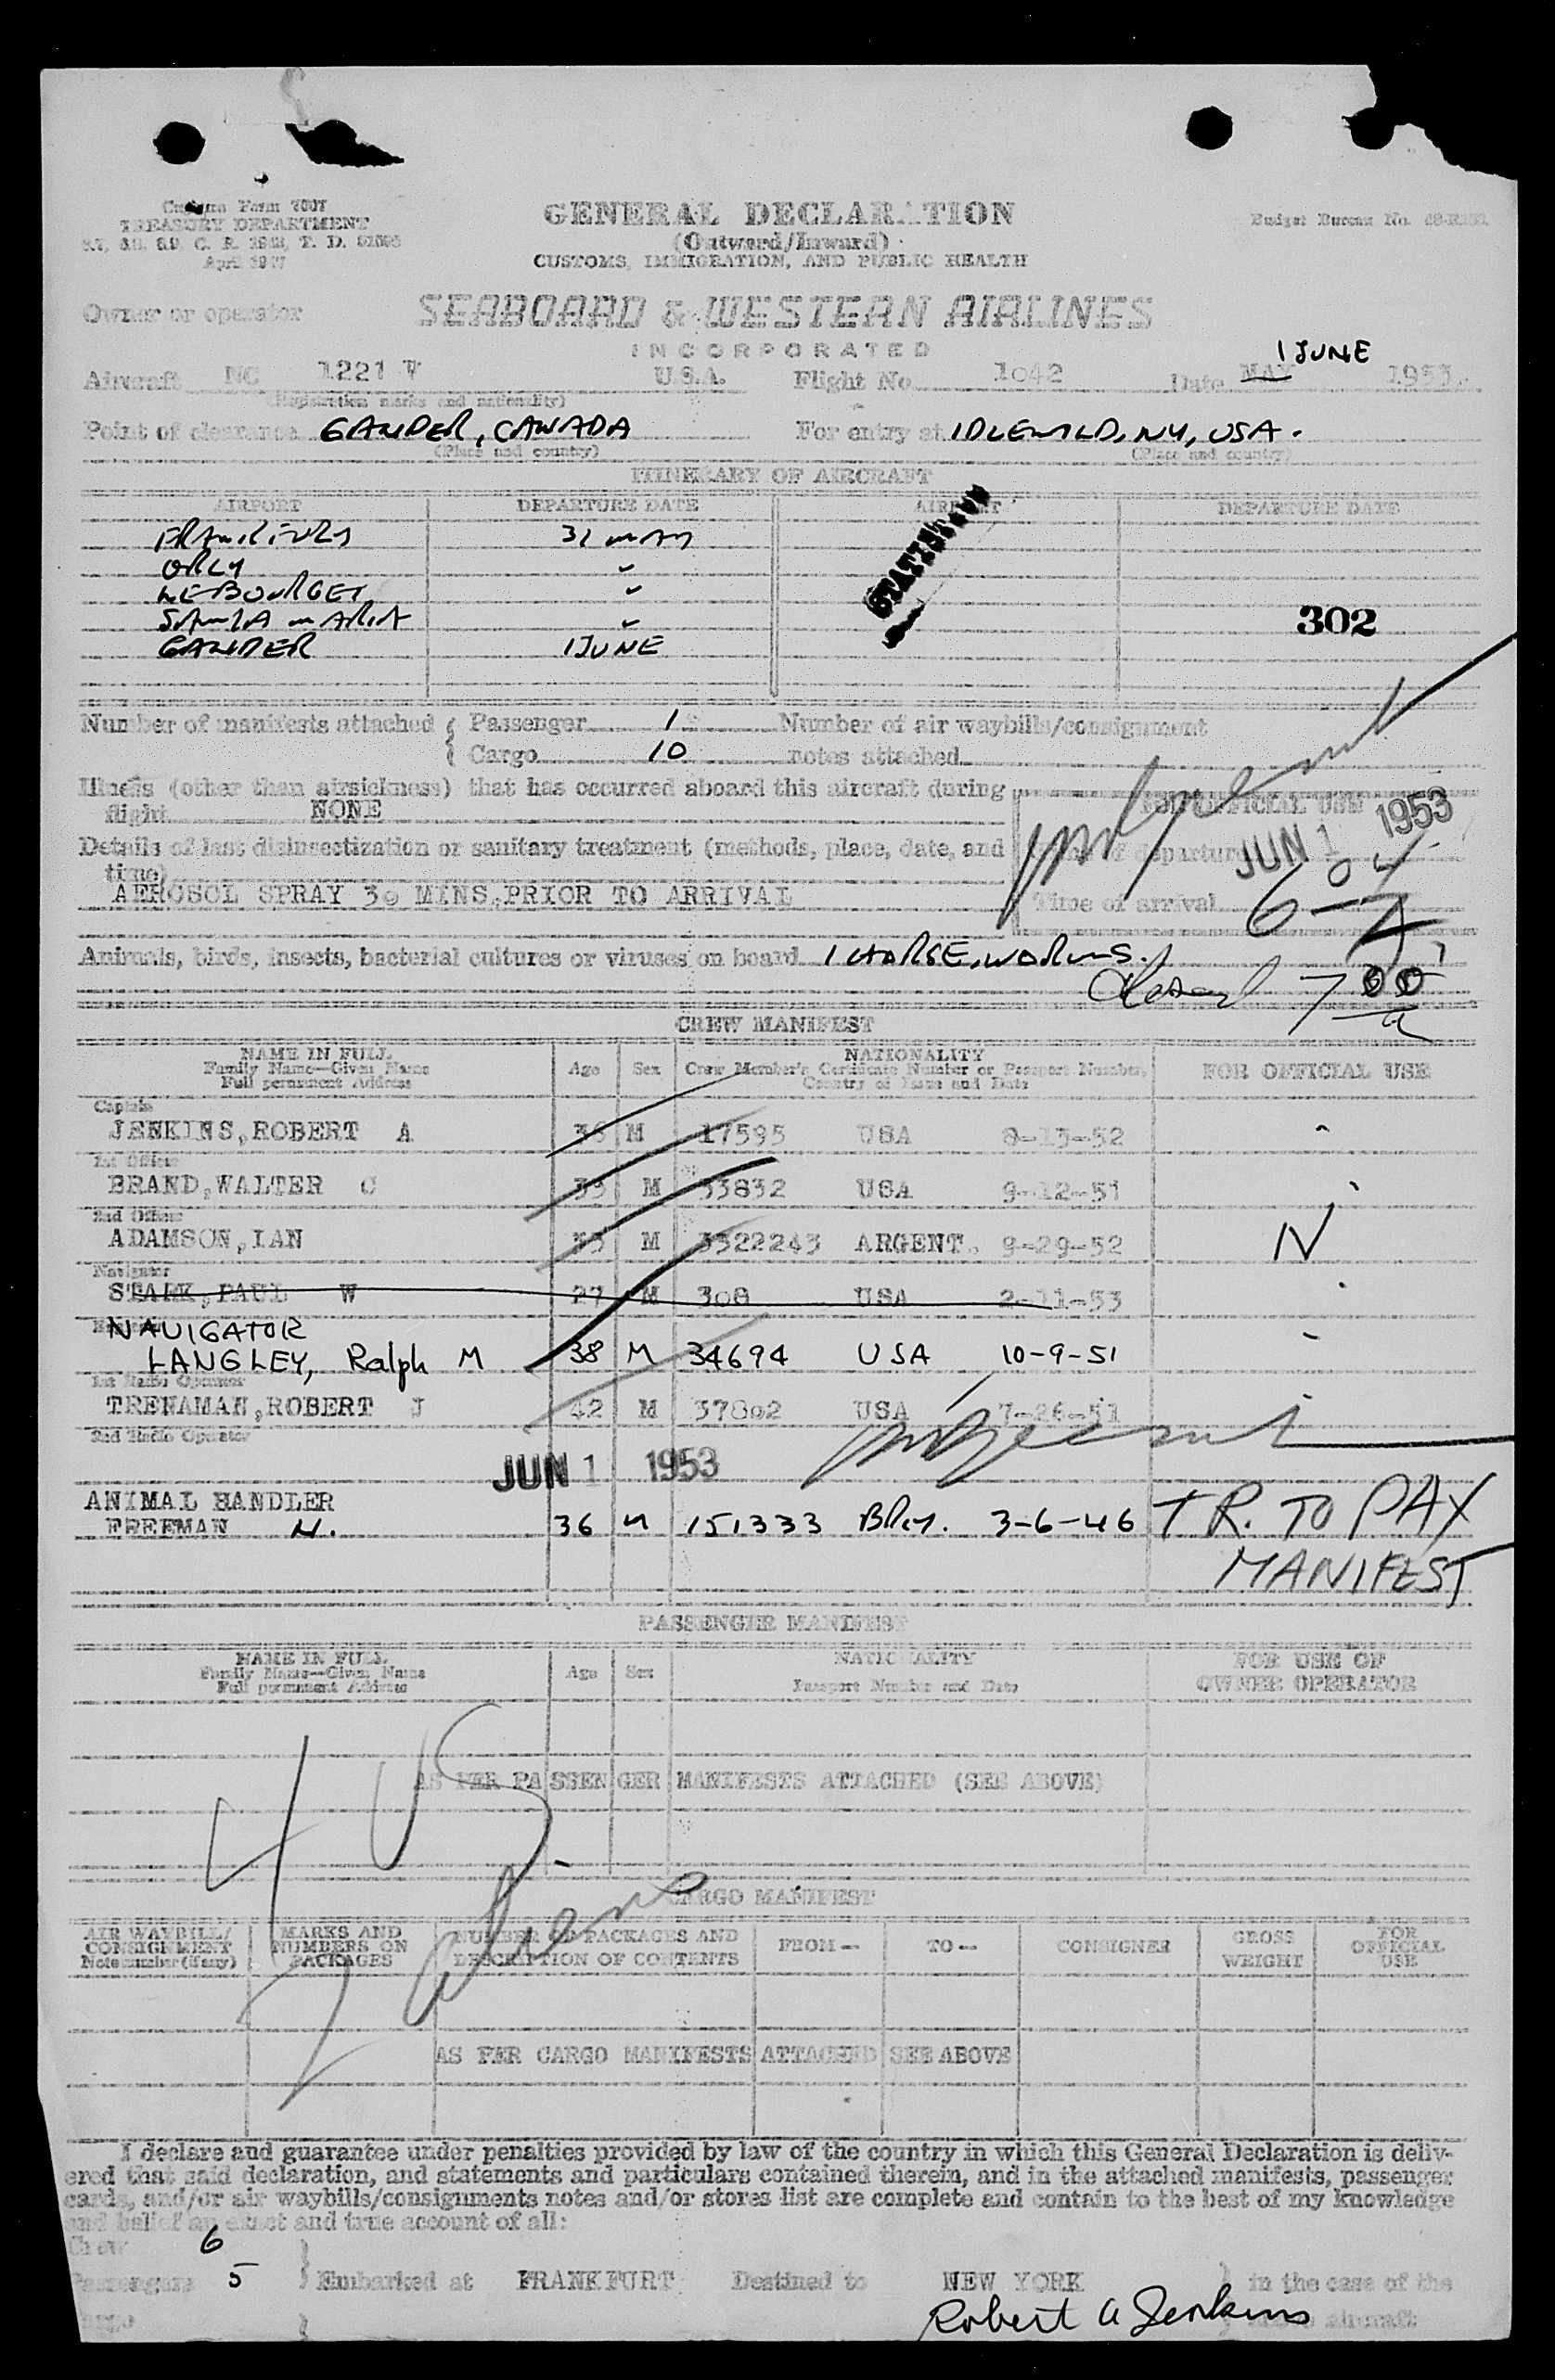 Customs Form 7507
TREASURY DEPARTMENT
April 1947
GENERAL DECLARATION
(Outward/Inward)
CUSTOMS, IMMIGRATION, AND PUBLIC HEALTH
Budget Bureau No.
Owner or operator SEABOARD & WESTERN AIRLINES
INCORPORATED
1 JUNE
Aircraft NC 1221 V U.S.A. Flight No. 1042 Date MAY 1953.
(Registration marks and nationality)
Point of clearance GANDER, CANADA For entry at IDLEWILD, NY, USA.
(Place and country) (Place and country)
ITINERARY OF AIRCRAFT
AIRPORT DEPARTURE DATE AIRPORT DEPARTURE DATE
FRANKFURT 31 MAY
ORLY "
LE BOURGET "
SANTA MARIA "
GANDER 1 JUNE
302
Number of manifests attached { Passenger 1 Number of air waybills/consignment
Cargo 10 notes attached
Illness (other than airsickness) that has occurred aboard this aircraft during
flight NONE
FOR OFFICIAL USE
JUN 1 1953
Details of last disinsectization or sanitary treatment (methods, place, date, and
time)
Time of departure
AEROSOL SPRAY 30 MINS. PRIOR TO ARRIVAL
Time of arrival 6-04 A
Animals, birds, insects, bacterial cultures or viruses on board 1 HORSE, WORMS.
7 00 a
CREW MANIFEST
NAME IN FULL
Family Name—Given Name
Full permanent Address
Age Sex
NATIONALITY
Crew Member's Certificate Number or Passport Number,
Country of Issue and Date
FOR OFFICIAL USE
Captain
JENKINS, ROBERT A 38 M 17595 USA 8-13-52
1st Officer
BRAND, WALTER C 33 M 33832 USA 9-12-51
2nd Officer
ADAMSON, IAN 33 M 3322243 ARGENT. 9-29-52 N
Navigator
STARK, PAUL W 27 M 308 USA 2-11-53
NAVIGATOR
LANGLEY, Ralph M 38 M 34694 USA 10-9-51
1st Radio Operator
TRENAMAN, ROBERT J 42 M 37802 USA 7-26-51
2nd Radio Operator
JUN 1 1953
ANIMAL HANDLER
FREEMAN N. 36 M 151333 3-6-46 TR. TO PAX
MANIFEST
PASSENGER MANIFEST
NAME IN FULL
Family Name—Given Name
Full permanent Address
Age Sex
NATIONALITY
Passport Number and Date
FOR USE OF
OWNER OPERATOR
AS PER PASSENGER MANIFESTS ATTACHED (SEE ABOVE)
4 US
2 alien
CARGO MANIFEST
AIR WAYBILL/
CONSIGNMENT
Note number (if any)
MARKS AND
NUMBERS ON
PACKAGES
NUMBER OF PACKAGES AND
DESCRIPTION OF CONTENTS
FROM—
TO—
CONSIGNEE
GROSS
WEIGHT
FOR
OFFICIAL
USE
AS PER CARGO MANIFESTS ATTACHED SEE ABOVE
I declare and guarantee under penalties provided by law of the country in which this General Declaration is deliv-
ered that said declaration, and statements and particulars contained therein, and in the attached manifests, passenger
cards, and/or air waybills/consignments notes and/or stores list are complete and contain to the best of my knowledge
and belief an exact and true account of all:
Crew 6
Passengers 5 } Embarked at FRANKFURT Destined to NEW YORK } in the case of the
Cargo aircraft
Robert A Jenkins